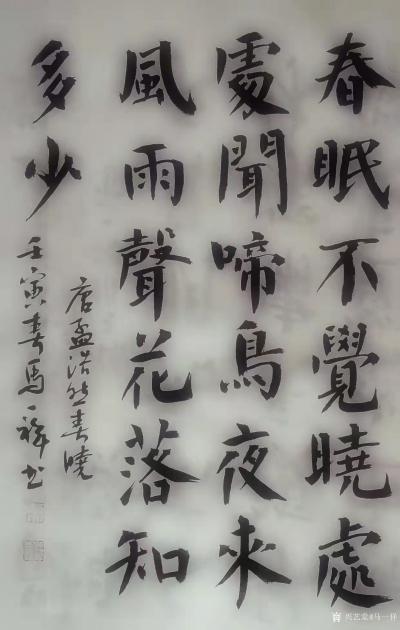 春眠不覺曉處
處聞啼鳥夜來
風雨聲花落知
多少
唐孟浩然春曉
壬寅春馬一祥书